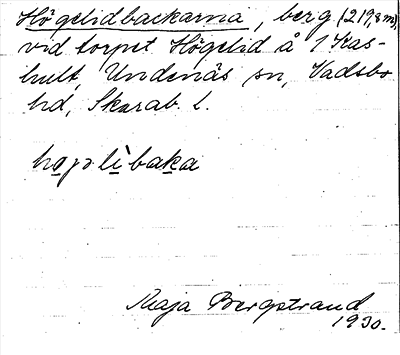 Högelidbackarna, berg (219,8 m),
vid torpet Högelid å 1 Kas-
hult, Undenäs sn, Vadsbo
hd, Skarab. l.
Maja Bergstrand
1930.